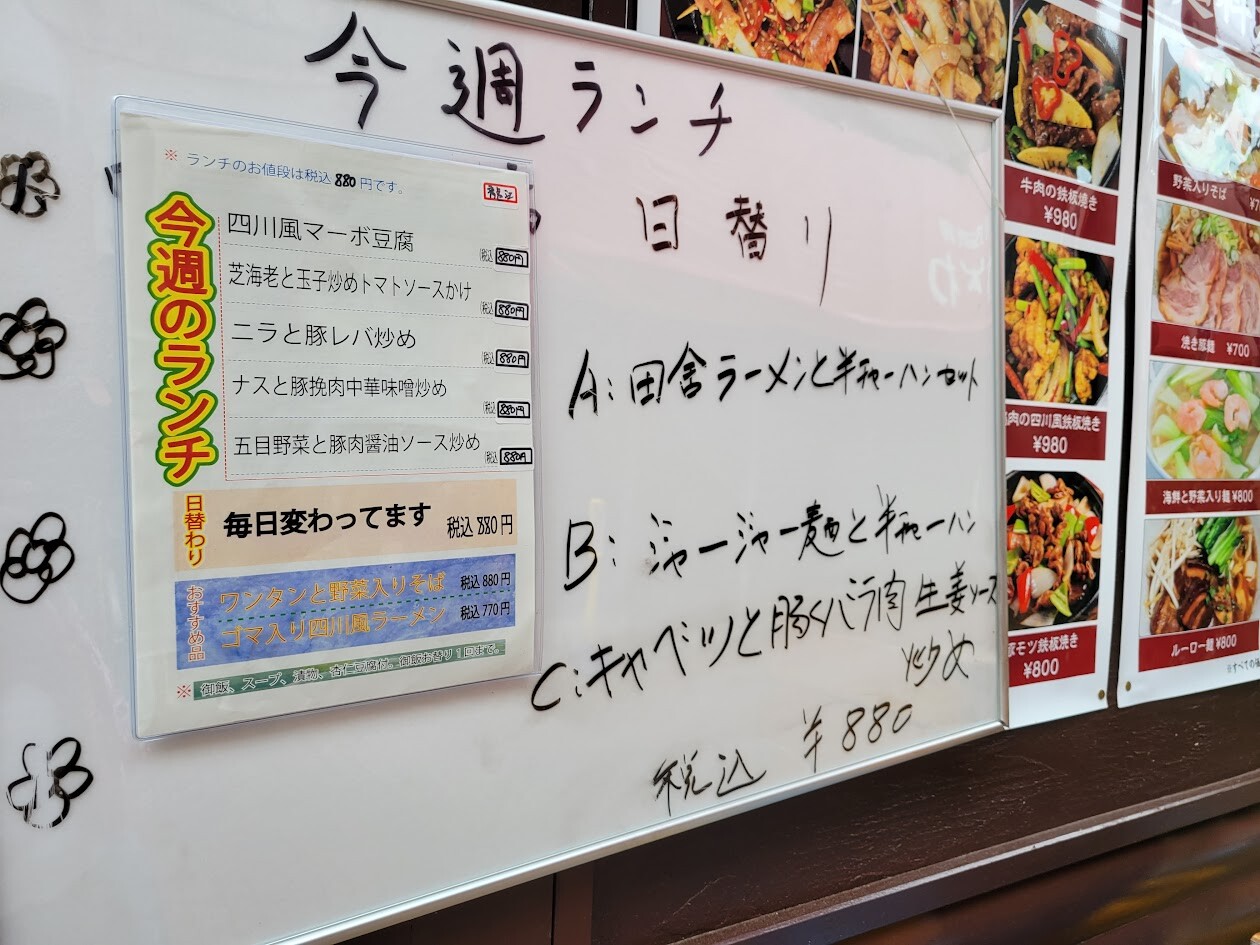 今週ランチ
※ ランチのお値段は税込 880 円です。
今週のランチ
四川風マーボ豆腐
税込 880円
芝海老と玉子炒めトマトソースかけ
税込 880円
ニラと豚レバ炒め
税込 880円
ナスと豚挽肉中華味噌炒め
税込 880円
五目野菜と豚肉醤油ソース炒め
税込 880円
日替わり
毎日変わってます 税込 880 円
おすすめ品
ワンタンと野菜入りそば 税込 880 円
ゴマ入り四川風ラーメン 税込 770 円
※ 御飯、スープ、漬物、杏仁豆腐付。御飯お替り1回まで。
日替り
A:田舎ラーメンと半チャーハンセット
B:ジャージャー麺と半チャーハン
C:キャベツと豚バラ肉生姜ソース
炒め
税込 ¥880
牛肉の鉄板焼き
¥980
肉の四川風鉄板焼き
¥980
モツ鉄板焼き
¥800
野菜入りそば
焼き豚麺 ¥700
海鮮と野菜入り麺 ¥800
ルーロー麺 ¥800